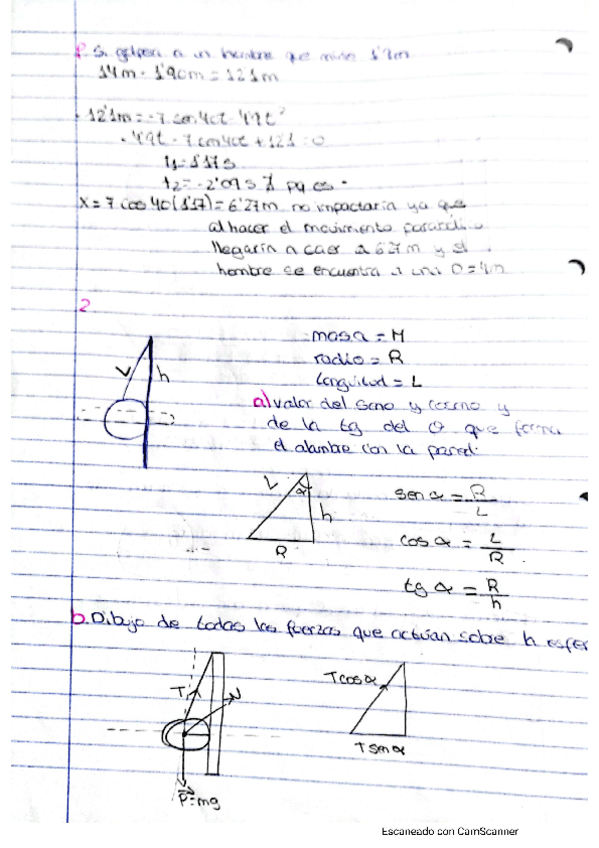 f. Si golpea a un hombre que mide 1'9m
14m - 1'90m = 12'1m
- 12'1m = -7 sen 40t - 4'9t²
- 4'9t - 7 sen 40t + 12'1 = 0
t1 = 1'17s
t2 = -2'09 s pq es -
X = 7 cos 40 (1'17) = 6'27m no impactaría ya que
al hacer el movimiento
llegaría a caer a 6'27m y el
hombre se encuentra a una D = 4m
2
masa = M
radio = R
longitud = L
L
h
a) valor del seno y coseno y
de la tg del θ que forma
el alambre con la pared.
L
α
h
R
sen α = R/L
cos α = L/R
tg α = R/h
b. Dibujo de todas las fuerzas que actúan sobre la esfer
T
N
P = mg
T cos α
T sen α
Escaneado con CamScanner